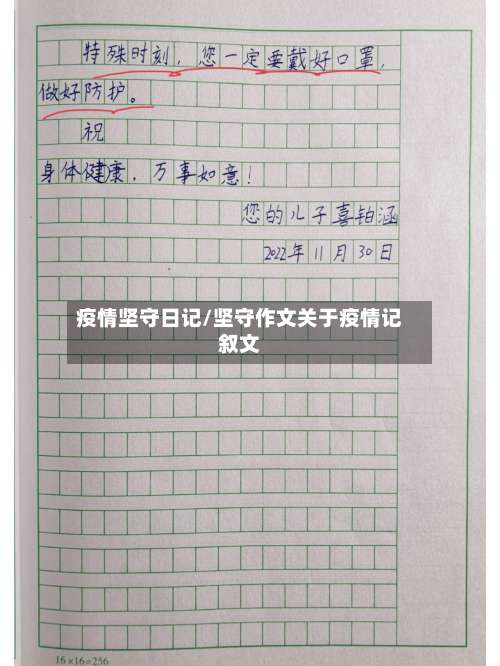 特殊时刻，您一定要戴好口罩，
做好防护。
祝
身体健康，万事如意！
您的儿子喜铂涵
2022年11月30日
疫情坚守日记/坚守作文关于疫情记
叙文
16×16=256